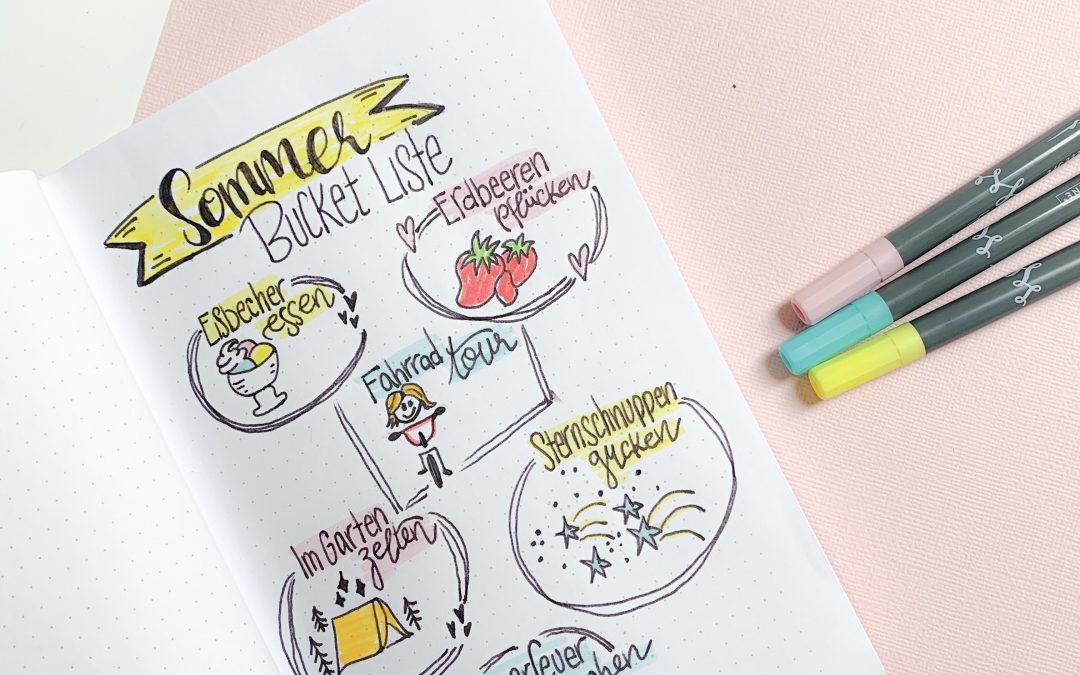 Sommer
Bucket Liste
Erdbeeren
pflücken
Eisbecher
essen
Fahrrad tour
Sternschnuppen
gucken
Im Garten
zelten